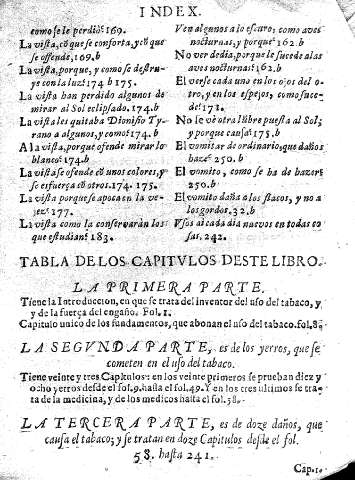 INDEX.
como se le perdiò? 169.
La vista, cõ que se conforta, y cõ que
se ofende, 109. b
La vista, porque, y como se destru-
ye con la luz? 174. b 175.
La vista han perdido algunos de
mirar al Sol eclipsado. 174. b.
La vista les quitaba Dionisio Ty-
rano a algunos, y como? 174. b
A la vista, porque ofende mirar lo
blanco? 174. b
La vista se ofende cõ unos colores, y
se esfuerça cõ otros. 174. 175.
La vista porque se apoca en la ve-
jez? 177.
La vista como la conservaràn los
que estudian? 183.
Ven algunos a lo escuro; como aves
nocturnas, y porque? 162. b
No ver de dia, porque le sucede a las
aves nocturnas? 162. b
El verse cada uno en los ojos del o-
tro, y en los espejos, como suce-
de? 171.
No se vè otra lũbre puesta al Sol;
y porque causa? 175. b
El vomitar de ordinario, que daños
haze? 250. b
El vomito, como se ha de hazer?
250. b
El vomito daña a los flacos, y no a
los gordos. 32. b
Vsos ai cada dia nuevos en todas co-
sas. 242.
TABLA DE LOS CAPITVLOS DESTE LIBRO.
LA PRIMERA PARTE.
Tiene la Introduccion, en que se trata del inventor del uso del tabaco, y
y de la fuerça del engaño. Fol. 1.
Capitulo unico de los fundamentos, que abonan el uso del tabaco. fol. 8.
LA SEGVNDA PARTE, es de los yerros, que se
cometen en el uso del tabaco.
Tiene veinte y tres Capitulos: en los veinte primeros se prueban diez y
ocho yerros desde el fol. 9. hasta el fol. 49. Y en los tres ultimos se tra-
ta de la medicina, y de los medicos hasta el fol. 58.
LA TERCERA PARTE, es de doze daños, que
causa el tabaco; y se tratan en doze Capitulos desde el fol.
58. hasta 241.
Cap. 1.